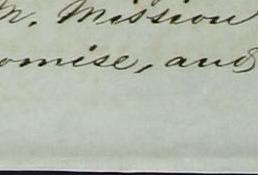 M. Mission
omise, and